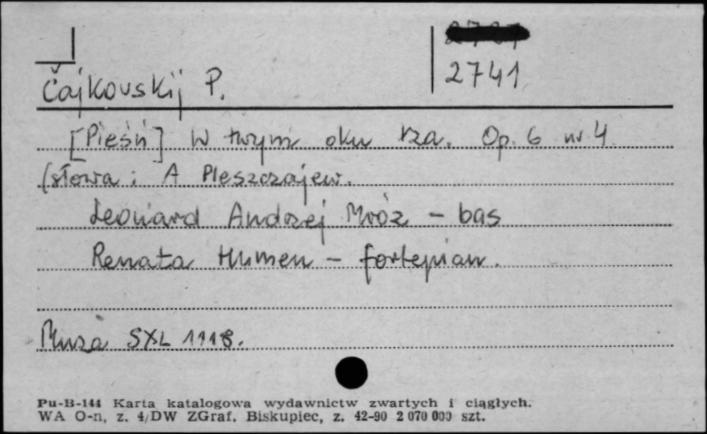 2741
Čajkovskij P.
[Pieśń] W twym oku łza. Op. 6 nr 4
(słowa: A Pleszczajew.
Leonard Andrzej Mróz - bas
Renata Humen - fortepian.
Muza SXL 1118.
Pu-B-144 Karta katalogowa wydawnictw zwartych i ciągłych.
WA O-n, z. 4/DW ZGraf. Biskupiec, z. 42-90 2 070 000 szt.